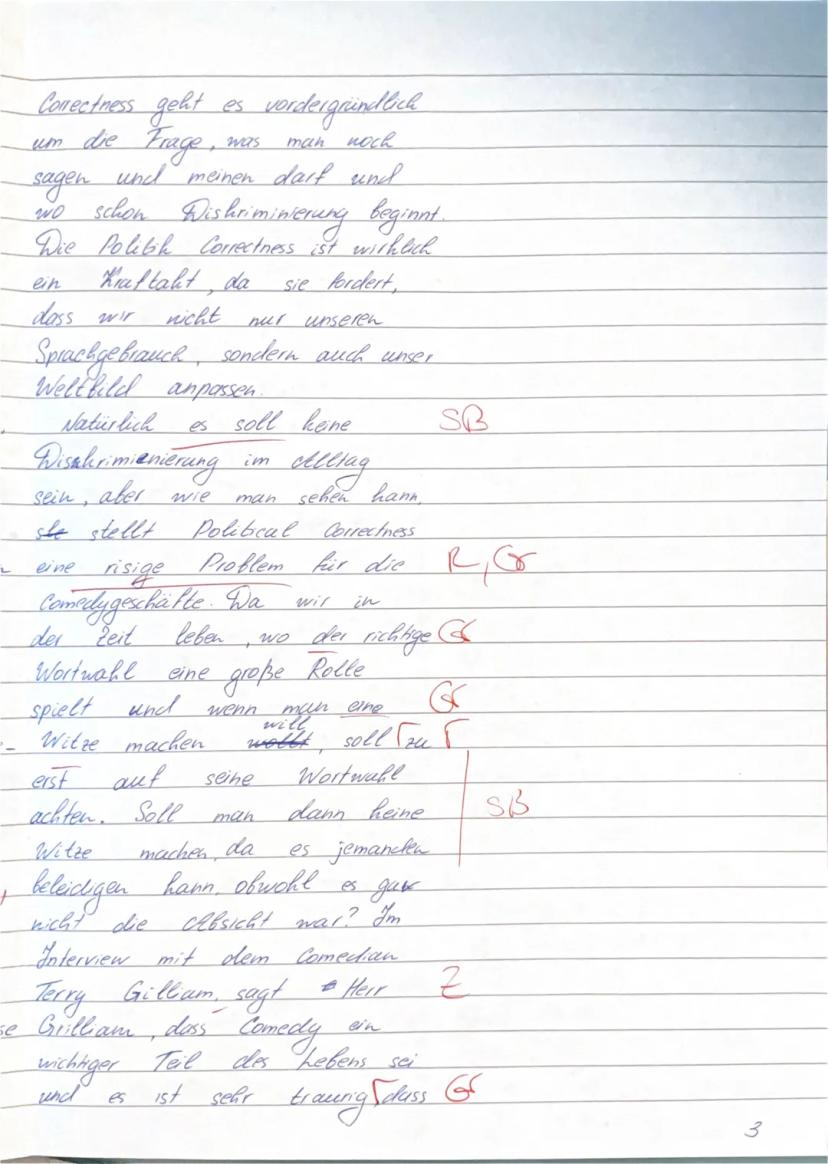 Correctness geht es vordergründlich
um die Frage, was man noch
sagen und meinen darf und
wo schon Diskriminierung beginnt.
Die Politik Correctness ist wirklich
ein Kraftakt, da sie fordert,
dass wir nicht nur unseren
Sprachgebrauch, sondern auch unser
Weltbild anpassen.
Natürlich es soll keine SB
Diskrimienierung im Alltag
sein, aber wie man sehen kann,
stellt Political Correctness
eine risige Problem für die R, Gr
Comedygeschäfte. Da wir in
der Zeit leben, wo der richtige Gr
Wortwahl eine große Rolle
spielt und wenn man eine Gr
Witze machen will, soll zu
erst auf seine Wortwahl
achten. Soll man dann keine SB
Witze machen, da es jemanden
beleidigen kann, obwohl es gar
nicht die Absicht war? Im
Interview mit dem Comedian
Terry Gilliam, sagt Herr Z
Grilliam, dass Comedy ein
wichtiger Teil des Lebens sei
und es ist sehr traurig dass Gr
3